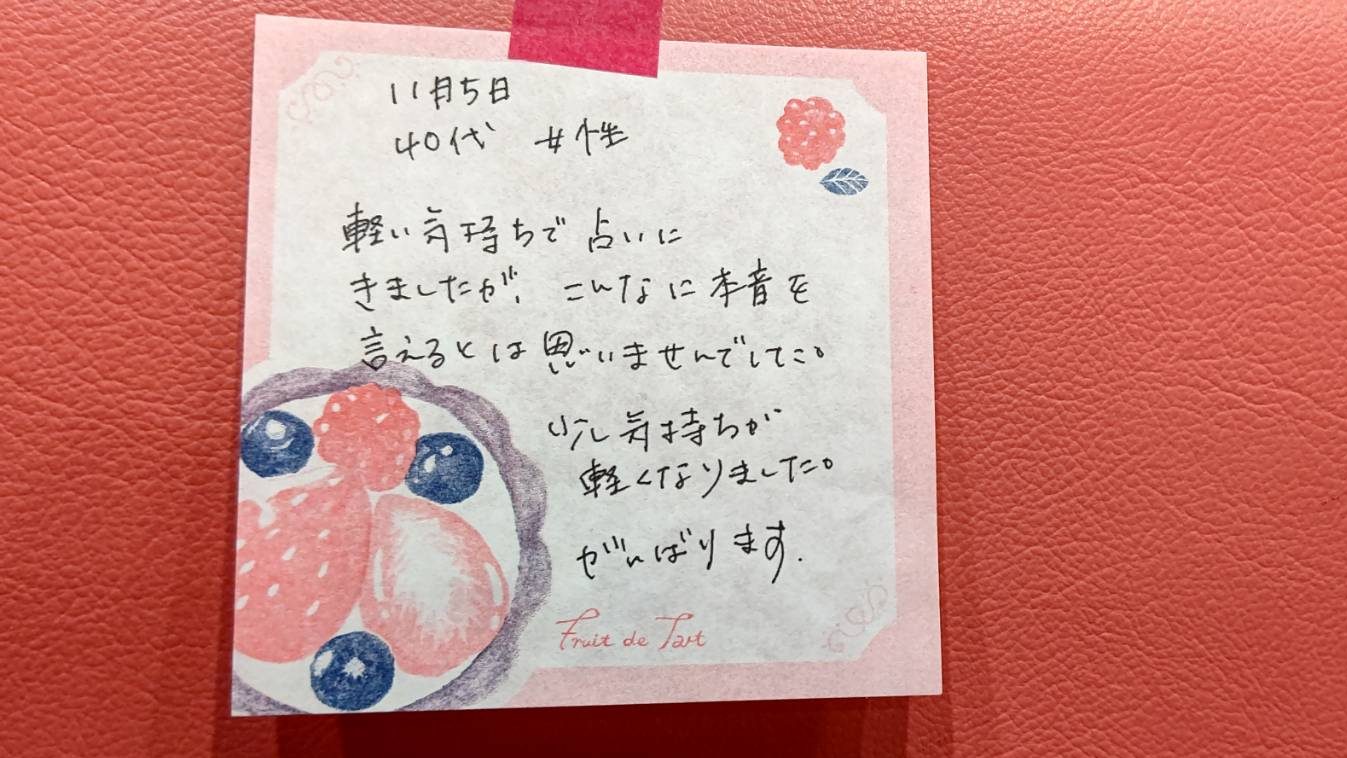 11月5日
40代 女性
軽い気持ちで占いに
きましたが、こんなに本音を
言えるとは思いませんでした。
少し気持ちが
軽くなりました。
がんばります.
Fruit de Tart